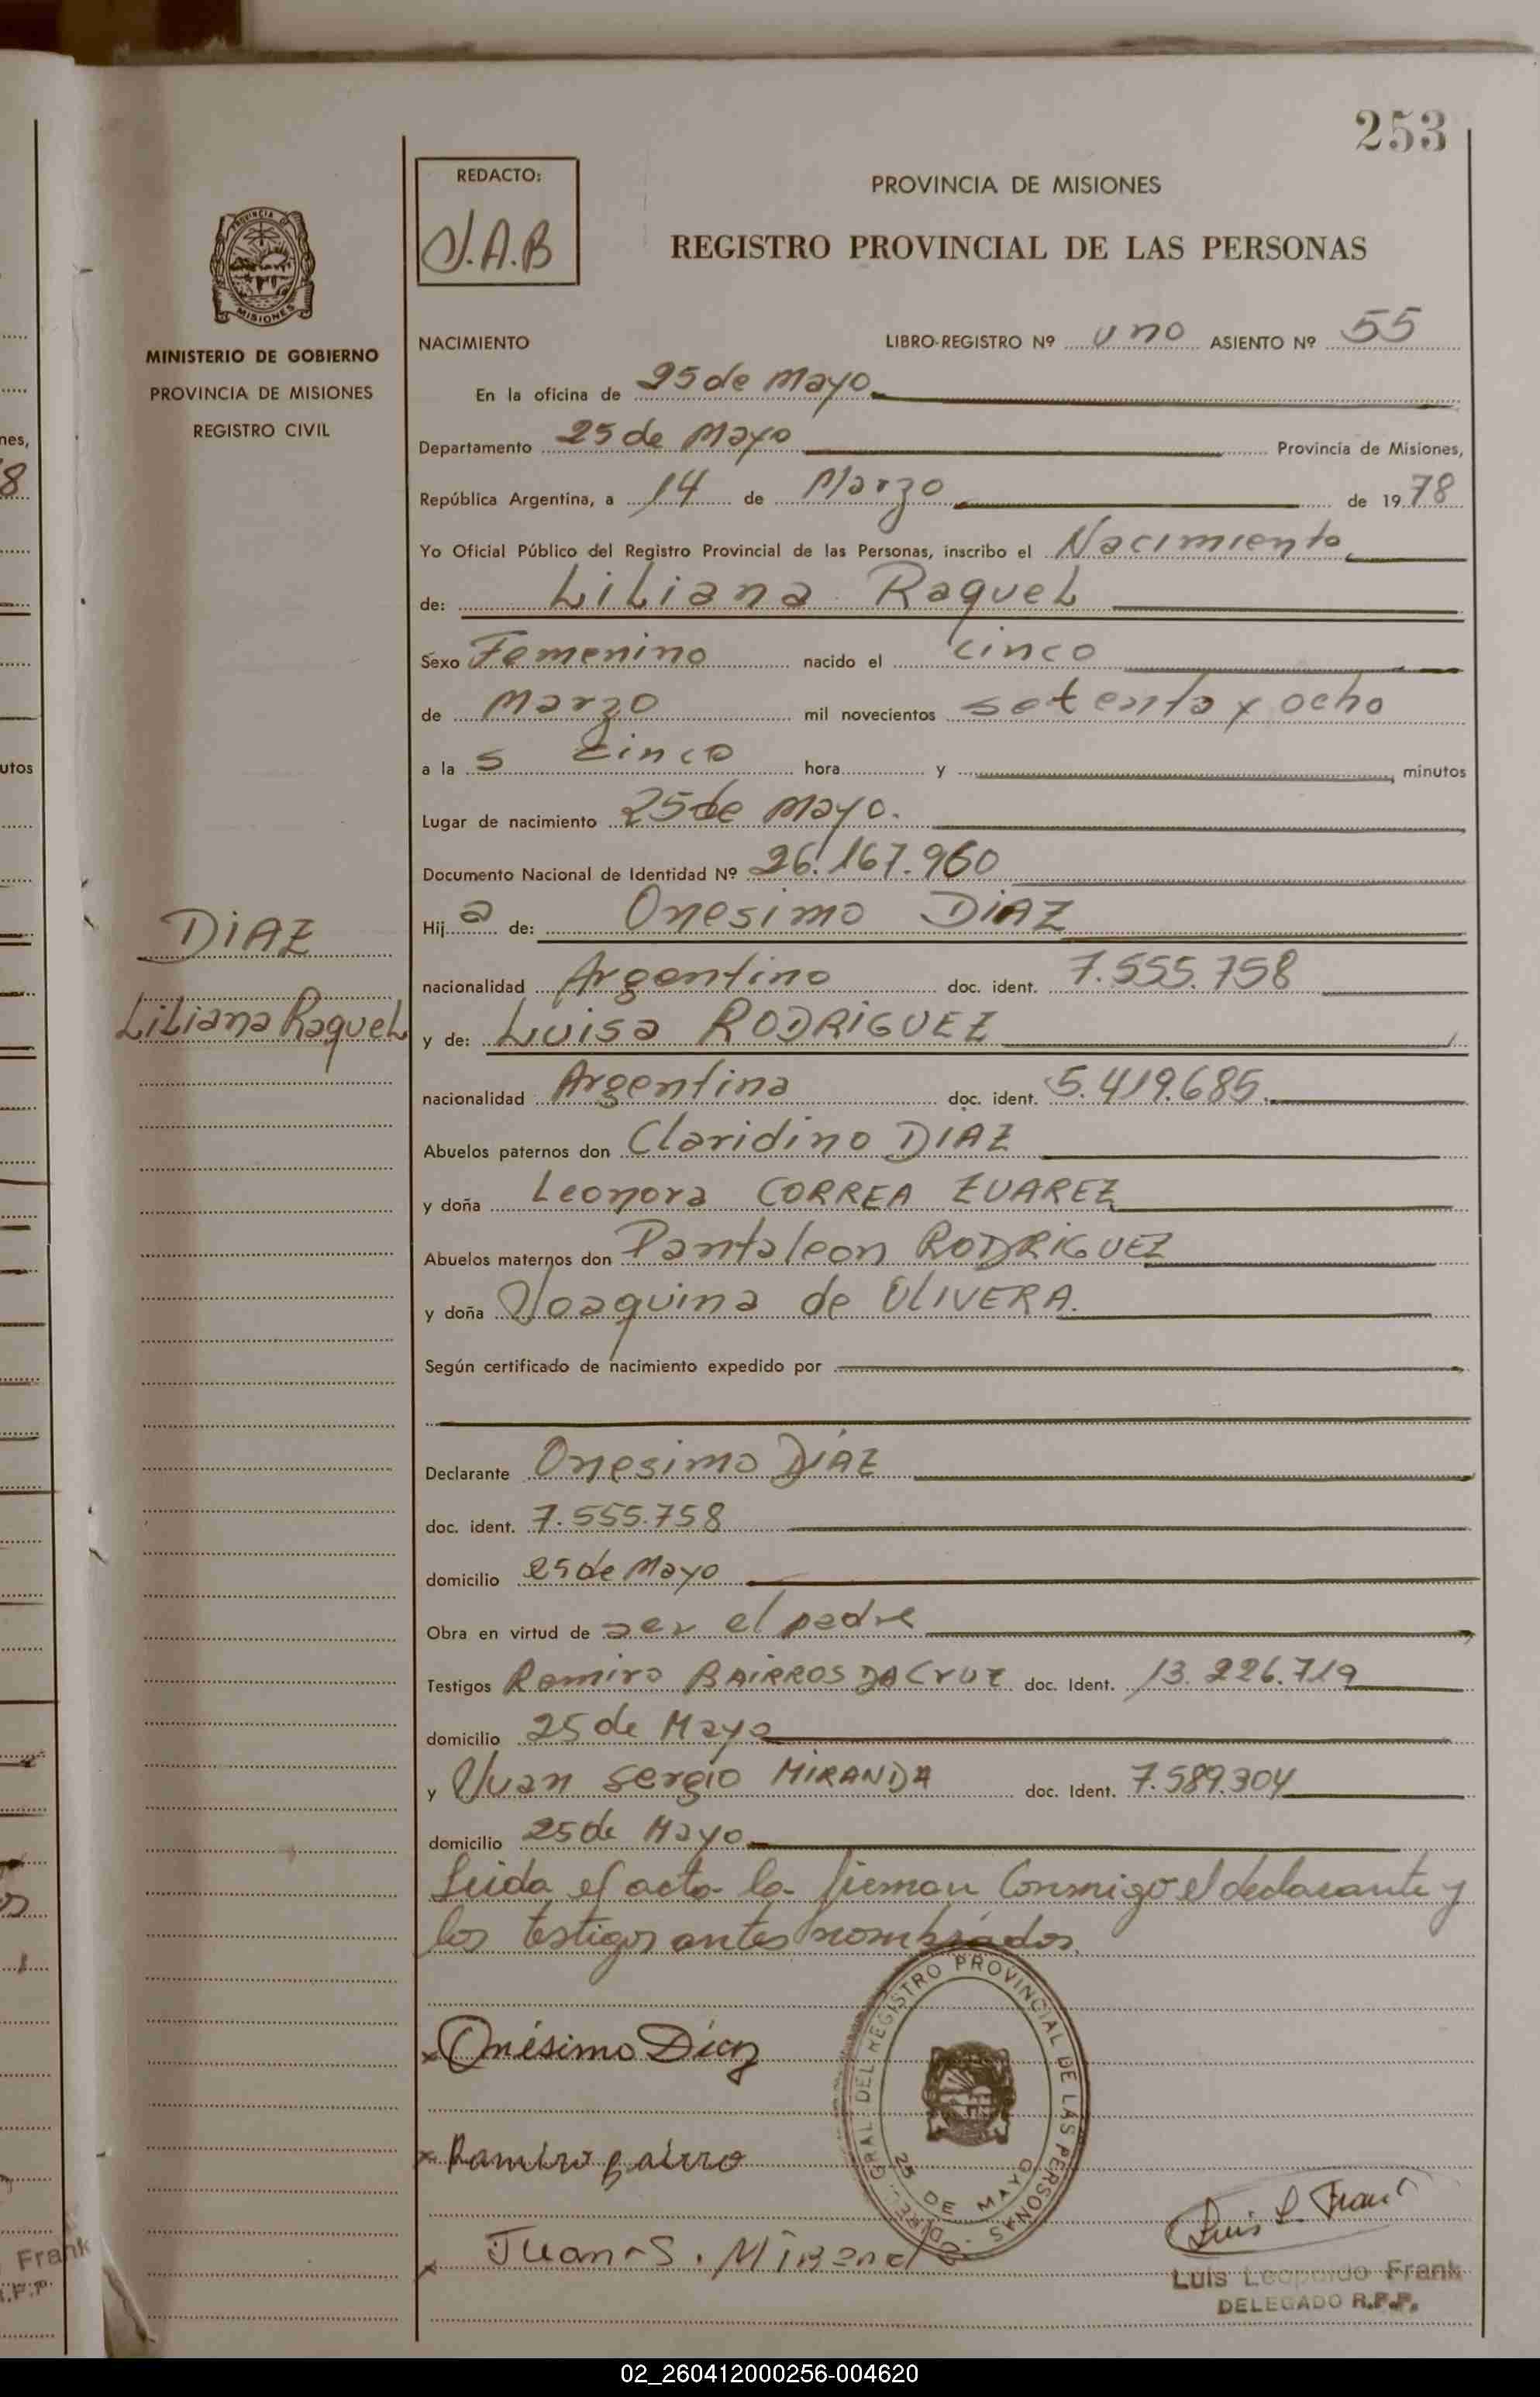 253
REDACTO:
J.A.B
PROVINCIA DE MISIONES
REGISTRO PROVINCIAL DE LAS PERSONAS
PROVINCIA DE MISIONES
MINISTERIO DE GOBIERNO
PROVINCIA DE MISIONES
REGISTRO CIVIL
NACIMIENTO LIBRO-REGISTRO Nº uno ASIENTO Nº 55
En la oficina de 25 de Mayo
Departamento 25 de Mayo Provincia de Misiones,
República Argentina, a 14 de Marzo de 1978
Yo Oficial Público del Registro Provincial de las Personas, inscribo el Nacimiento
de: Liliana Raquel
Sexo Femenino nacido el cinco
de Marzo mil novecientos setenta y ocho
a la s cinco hora y minutos
Lugar de nacimiento 25 de Mayo.
Documento Nacional de Identidad Nº 26.167.960
Hij a de: Onesimo DIAZ
DIAZ
nacionalidad Argentino doc. ident. 7.555.758
Liliana Raquel
y de: Luisa RODRIGUEZ
nacionalidad Argentina doc. ident. 5.419.685.
Abuelos paternos don Claridino DIAZ
y doña Leonora CORREA ZUAREZ
Abuelos maternos don Pantaleon RODRIGUEZ
y doña Joaquina de OLIVERA.
Según certificado de nacimiento expedido por
Declarante Onesimo DIAZ
doc. ident. 7.555.758
domicilio 25 de Mayo
Obra en virtud de ser el padre
Testigos Ramiro BAIRROS DA CruZ doc. Ident. 13.226.719
domicilio 25 de Mayo
y Juan Sergio MIRANDA doc. Ident. 7.589.304
domicilio 25 de Mayo
Leida el acta la firman Conmigo el declarante y
los testigos antes nombrados.
DIREC. GRAL. DEL REGISTRO PROVINCIAL DE LAS PERSONAS
25 DE MAYO
x Onésimo Díaz
x Ramiro Bairro
x Juan S. Mirand
Luis L. Frank
Luis Leopoldo Frank
DELEGADO R.P.P.
nes,
8
utos
Frank
.P.P.
02_260412000256-004620